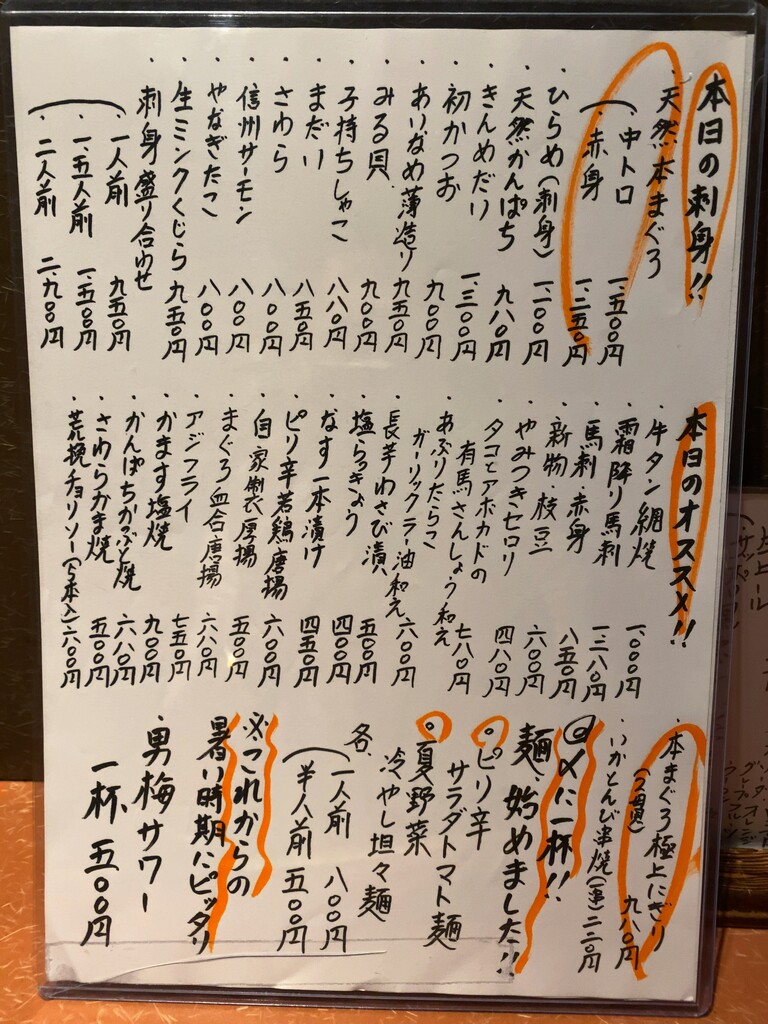 本日の刺身!!
・天然本まぐろ
中トロ 一、五〇〇円
赤身 一、二五〇円
・ひらめ(刺身) 一、二〇〇円
・天然かんぱち 九八〇円
・きんめだい 一、三〇〇円
・初かつお 九〇〇円
・あいなめ薄造り 九五〇円
・みる貝 九〇〇円
・子持ちしゃこ 八八〇円
・まだい 八五〇円
・さわら 八〇〇円
・信州サーモン 八〇〇円
・やなぎたこ 八〇〇円
・生ミンクくじら 九五〇円
・刺身盛り合わせ
・一人前 九五〇円
・一、五人前 一、五〇〇円
・二人前 二、九〇〇円
本日のオススメ!!
・牛タン網焼 一、〇〇〇円
・霜降り馬刺 一、三八〇円
・馬刺・赤身 八五〇円
・新物・枝豆 六〇〇円
・やみつきセロリ 四八〇円
・タコとアボカドの
有馬さんしょう和え 七八〇円
・あぶりたらこ
ガーリックラー油和え 六〇〇円
・長芋わさび漬 五〇〇円
・塩らっきょう 四〇〇円
・なす一本漬け 四五〇円
・ピリ辛若鶏唐揚 六〇〇円
・自家製厚揚 五〇〇円
・まぐろ血合唐揚 六八〇円
・アジフライ 七五〇円
・かます塩焼 九〇〇円
・かんぱちかぶと焼 六八〇円
・さわらかま焼 五〇〇円
・荒挽チョリソー(5本入) 六八〇円
・本まぐろ極上にぎり
(2貫) 九八〇円
・いかとんび串焼(一串) 二二〇円
◎〆に一杯!!
麺、始めました!!
・ピリ辛
サラダトマト麺
・夏野菜
冷やし坦々麺
各、
一人前 八〇〇円
半人前 五〇〇円
※これからの
暑い時期にピッタリ
男梅サワー
一杯 五〇〇円